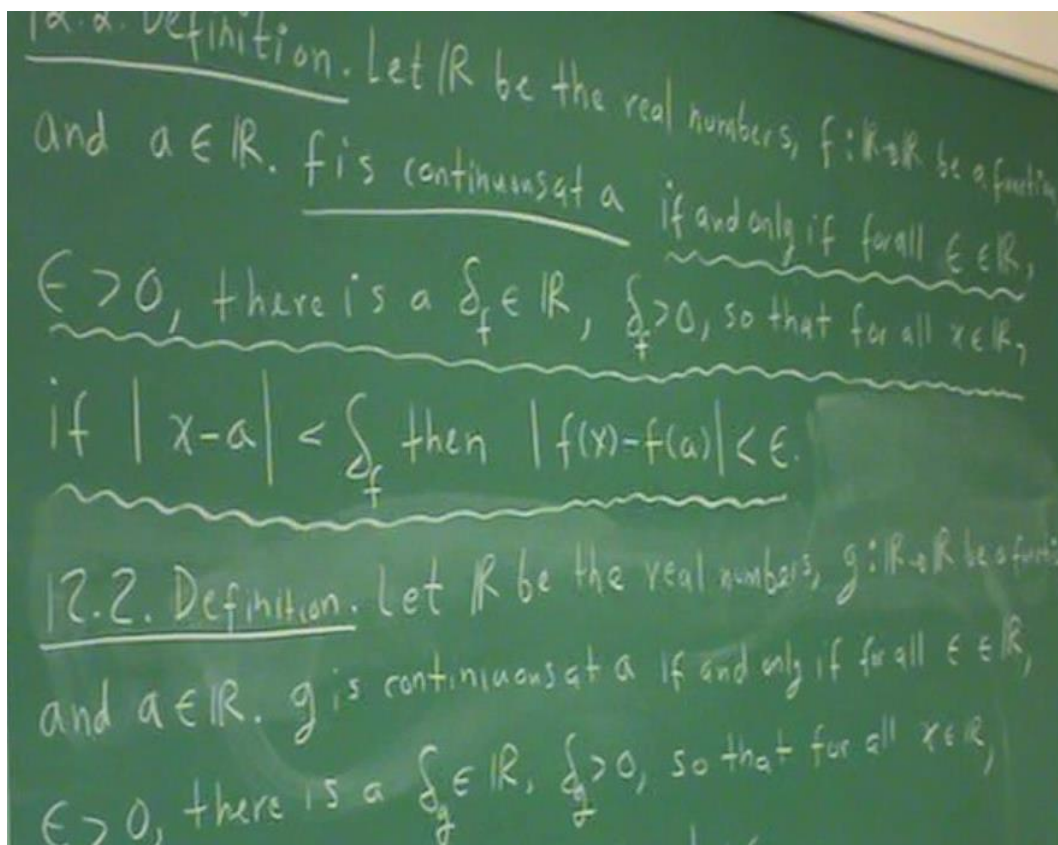 12.2. Definition. Let ℝ be the real numbers, f:ℝ→ℝ be a function
and a ∈ ℝ. f is continuous at a if and only if for all ϵ ∈ ℝ,
ϵ > 0, there is a δ_f ∈ ℝ, δ_f > 0, so that for all x ∈ ℝ,
if |x-a| < δ_f then |f(x)-f(a)| < ϵ.
12.2. Definition. Let ℝ be the real numbers, g:ℝ→ℝ be a functi
and a ∈ ℝ. g is continuous at a if and only if for all ϵ ∈ ℝ,
ϵ > 0, there is a δ_g ∈ ℝ, δ_g > 0, so that for all x ∈ ℝ,